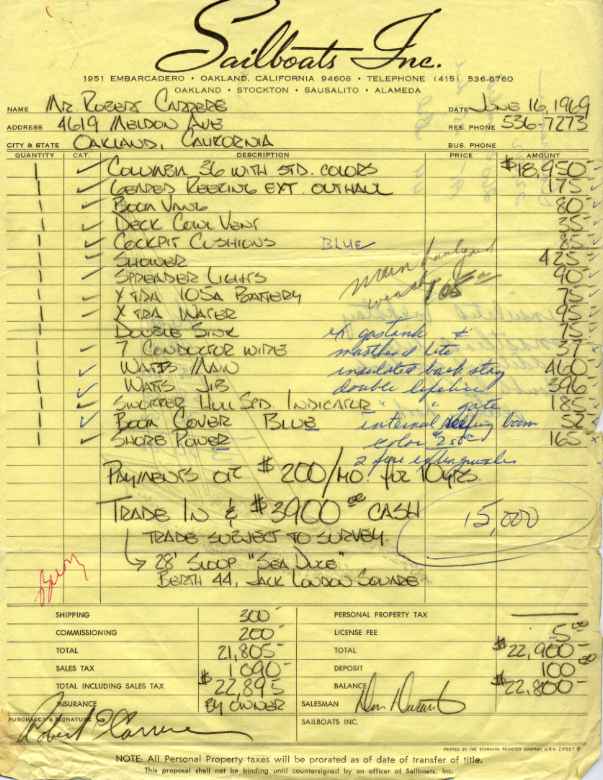 Sailboats Inc.
1951 EMBARCADERO • OAKLAND, CALIFORNIA 94606 • TELEPHONE (415) 536-6760
OAKLAND • STOCKTON • SAUSALITO • ALAMEDA
NAME MR ROBERT CARRERE DATE JUNE 16, 1969
ADDRESS 4619 MELDON AVE RES. PHONE 536-7273
CITY & STATE OAKLAND, CALIFORNIA BUS. PHONE
QUANTITY CAT. DESCRIPTION PRICE AMOUNT
1 ✓ COLUMBIA 36 WITH STD. COLORS $18,950-
1 ✓ GEARED REEFING EXT. OUTHAUL 175-
1 ✓ BOOM VANG 80-
1 ✓ DECK COWL VENT 35-
1 ✓ COCKPIT CUSHIONS BLUE 85-
1 ✓ SHOWER 425-
1 ✓ SPREADER LIGHTS main halyard 90-
1 ✓ XTRA 105A BATTERY winch 105 75-
1 ✓ XTRA WATER 95-
1 DOUBLE SINK gastank & 75-
1 ✓ 7 CONDUCTOR WIRE masthead lite 37-
1 ✓ WATTS MAIN insulated back stay 460-
1 ✓ WATTS JIB double lifeline 396-
1 ✓ SWOFFER HULL SPD. INDICATOR " " gate 185-
1 ✓ BOOM COVER BLUE internal boom 52-
1 ✓ SHORE POWER color 165-
2 fire extinguishers
PAYMENTS OF $200/MO. for 10 YRS.
TRADE IN & $3900 00 CASH 15,000
TRADE SUBJECT TO SURVEY
28' SLOOP "SEA DUCE"
BERTH 44, JACK LONDON SQUARE
SHIPPING 300- PERSONAL PROPERTY TAX
COMMISSIONING 200- LICENSE FEE 5 00
TOTAL 21,805- TOTAL $22,900-
SALES TAX 1090- DEPOSIT 100 00
TOTAL INCLUDING SALES TAX $22,895 BALANCE $22,800-
INSURANCE BY OWNER SALESMAN
PURCHASER'S SIGNATURE Robert Carrere SAILBOATS INC.
NOTE: All Personal Property taxes will be prorated as of date of transfer of title.
This proposal shall not be binding until countersigned by an officer of Sailboats, Inc.